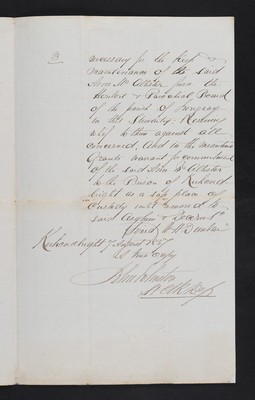 3
necessary for the keep &
maintenance of the said
John McAllister from the
Heritors & Parochial Board
of the parish of Irongray
in the Stewartry. Reserving
relief to them against all
concerned, And in the meantime
Grants warrant for commitment
of the said John McAllister
to the Prison of Kirkcud
bright as a safe place of
Custody until removed to
said Asylum &
(Signed) W. H. Dunbar
Kirkcudbright 7 August 1857
A true Copy